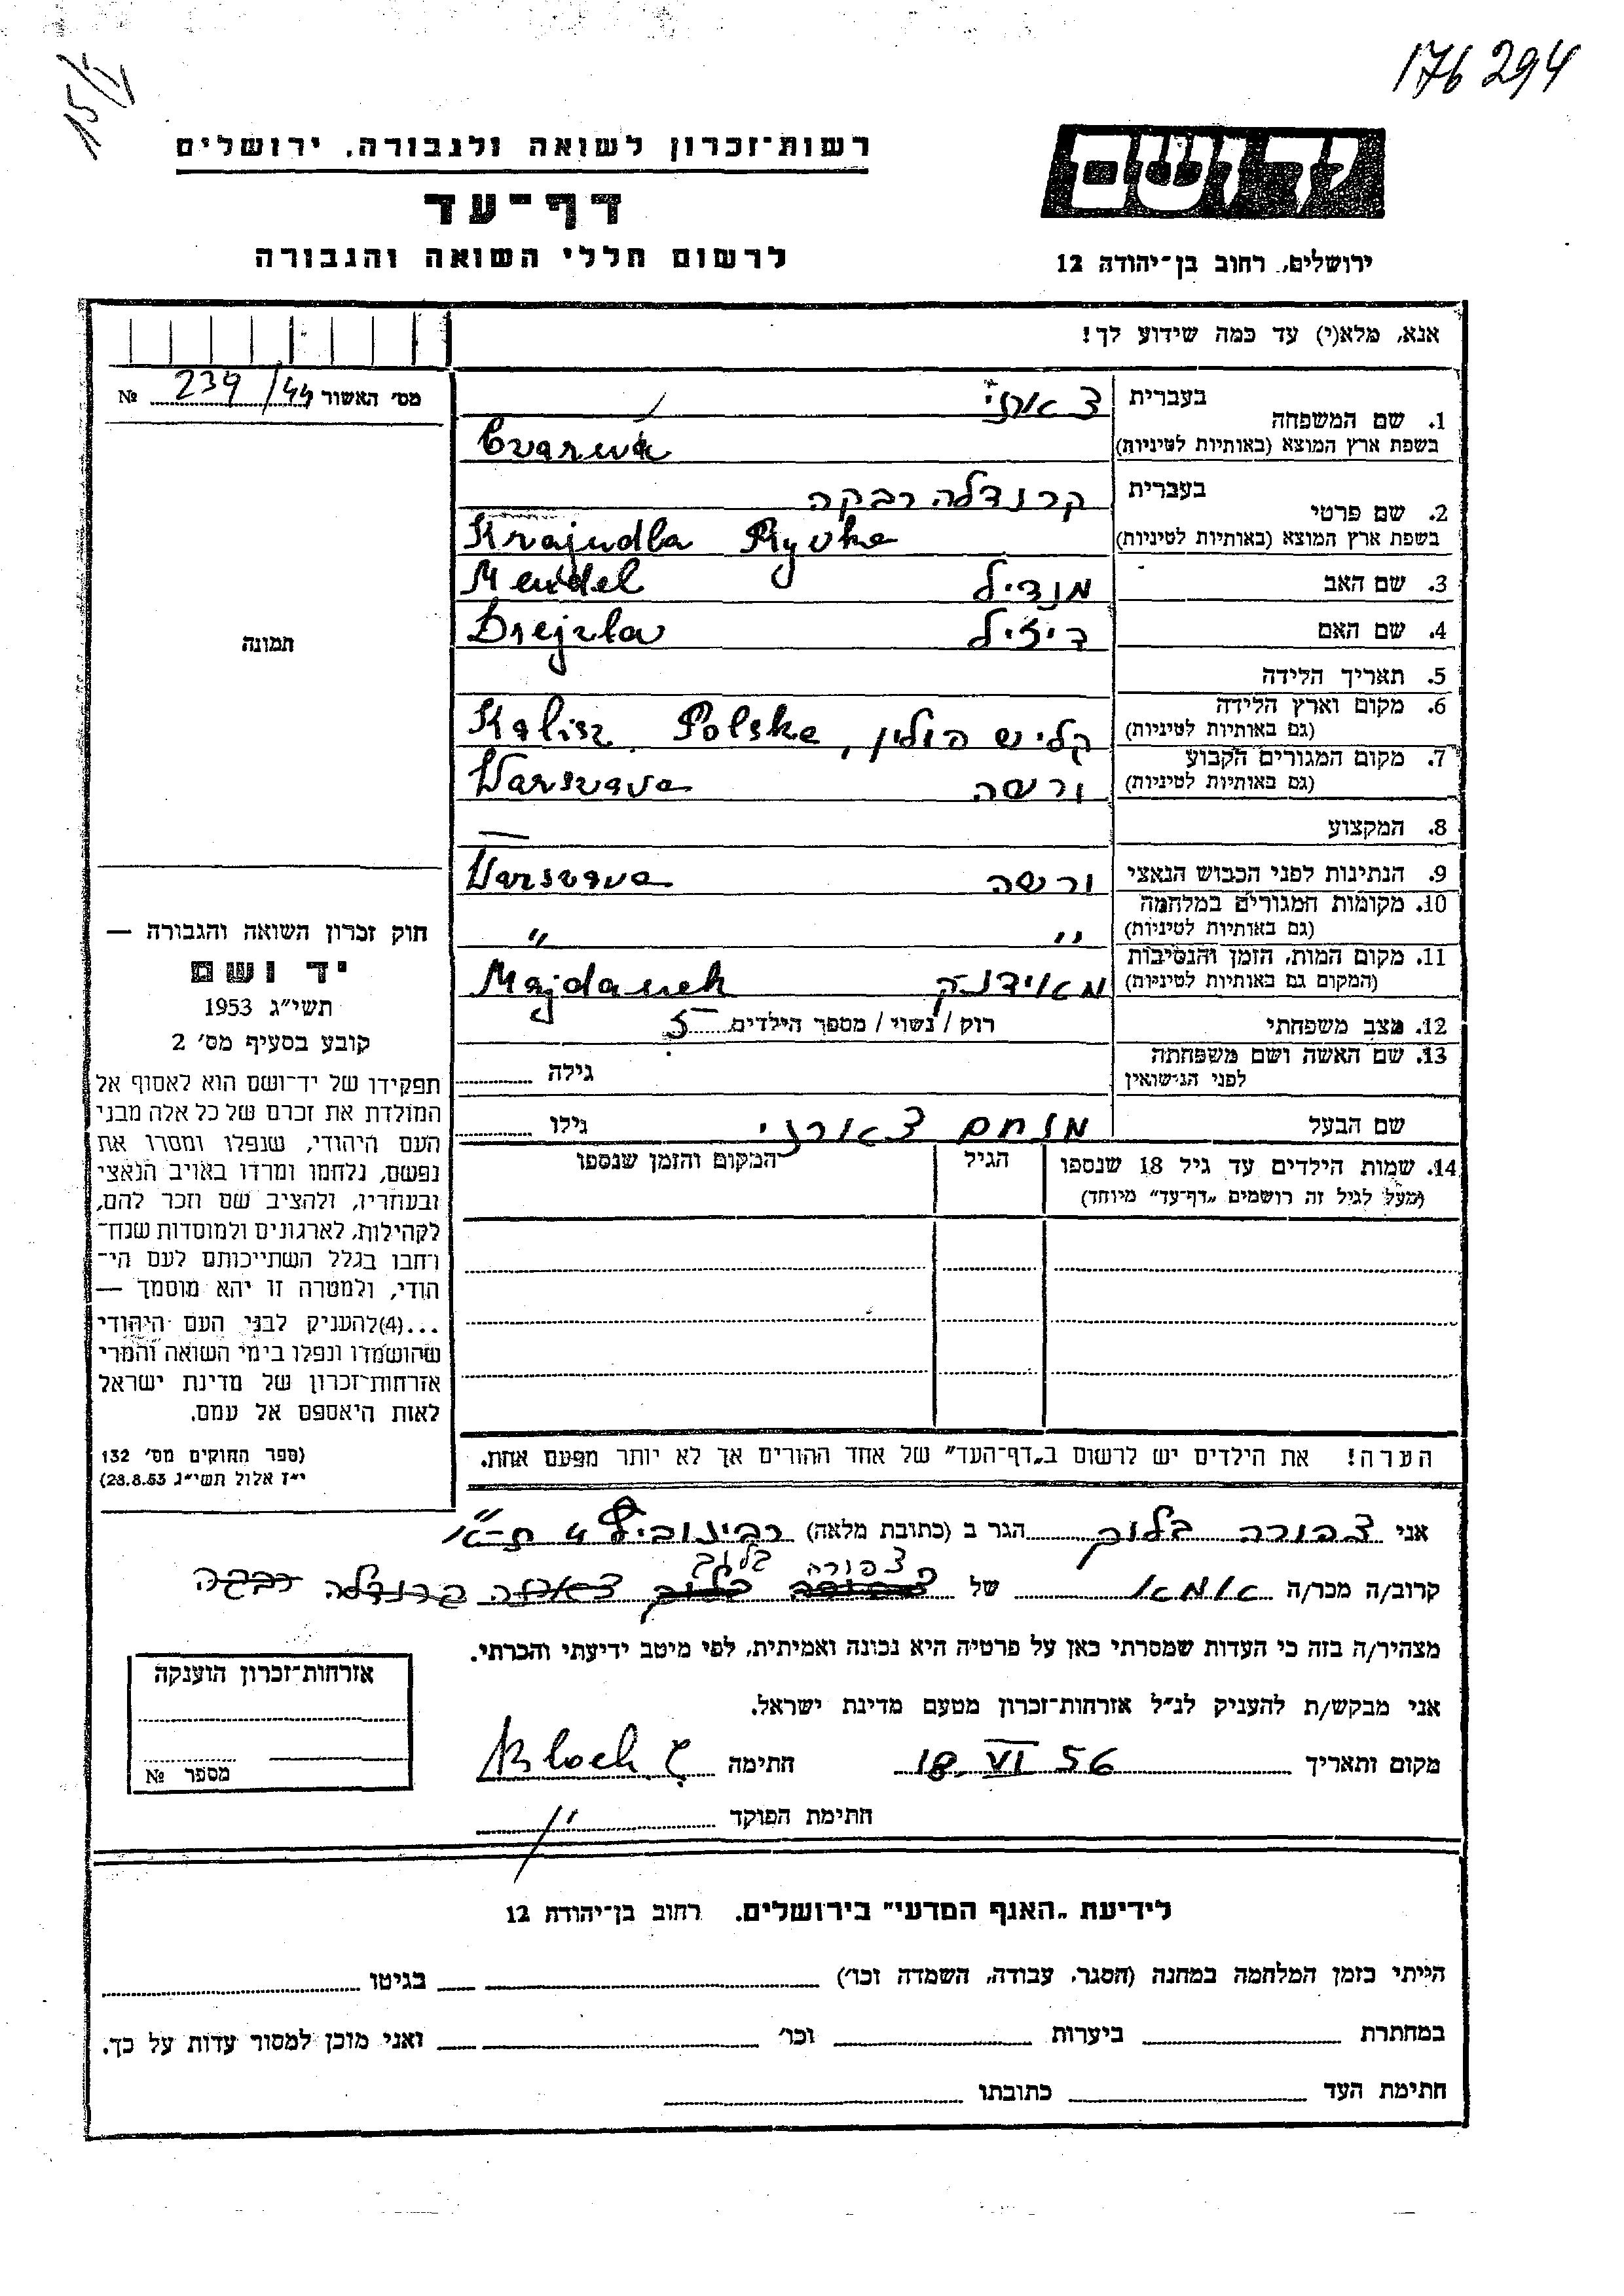 15/V
176 294
יד ושם
ירושלים, רחוב בן־יהודה 12
רשות־זכרון לשואה ולגבורה, ירושלים
דף־עד
לרשום חללי השואה והגבורה
אנא, מלא(י) עד כמה שידוע לך!
מס׳ האשור 239/44 №
תמונה
1. שם המשפחה
בעברית
בשפת ארץ המוצא (באותיות לטיניות)
2. שם פרטי
בעברית קרנדלה רבקה
בשפת ארץ המוצא (באותיות לטיניות) Krajndla Ryvka
3. שם האב מנדיל Mendel
4. שם האם דיזיל Drejzla
5. תאריך הלידה
6. מקום וארץ הלידה
(גם באותיות לטיניות) קליש פולין, Kalisz Polska
7. מקום המגורים הקבוע
(גם באותיות לטיניות) ורשה Warszava
8. המקצוע —
9. הנתינות לפני הכבוש הנאצי ורשה Warszava
10. מקומות המגורים במלחמה
(גם באותיות לטיניות) ״ ״
11. מקום המות, הזמן והנסיבות
(המקום גם באותיות לטיניות) מאידנק Majdanek
12. מצב משפחתי רוק / נשוי / מספר הילדים 5
13. שם האשה ושם משפחתה
לפני הנישואין גילה
שם הבעל מנחם צארני גילו
14. שמות הילדים עד גיל 18 שנספו
(מעל לגיל זה רושמים „דף־עד״ מיוחד)
הגיל
המקום והזמן שנספו
הערה! את הילדים יש לרשום ב„דף־העד״ של אחד ההורים אך לא יותר מפעם אחת.
חוק זכרון השואה והגבורה —
יד ושם
תשי״ג 1953
קובע בסעיף מס׳ 2
תפקידו של יד־ושם הוא לאסוף אל
המולדת את זכרם של כל אלה מבני
העם היהודי, שנפלו ומסרו את
נפשם, נלחמו ומרדו באויב הנאצי
ובעוזריו, ולהציב שם וזכר להם,
לקהילות, לארגונים ולמוסדות שנח־
רחבו בגלל השתייכותם לעם הי־
הודי, ולמטרה זו יהא מוסמך —
...(4)להעניק לבני העם היהודי
שהושמדו ונפלו בימי השואה והמרי
אזרחות־זכרון של מדינת ישראל
לאות היאספם אל עמם.
(ספר החוקים מס׳ 132
י״ז אלול תשי״ג 28.8.53)
אני צפורה בלוך הגר ב (כתובת מלאה) 4 ת״א
צפורה בלוך
קרוב/ה מכר/ה אמא של
מצהיר/ה בזה כי העדות שמסרתי כאן על פרטיה היא נכונה ואמיתית, לפי מיטב ידיעתי והכרתי.
אני מבקש/ת להעניק לנ״ל אזרחות־זכרון מטעם מדינת ישראל.
מקום ותאריך 18. VI 56 חתימה Bloch
חתימת הפוקד
אזרחות־זכרון הוענקה
מספר №
לידיעת „האגף המדעי״ בירושלים. רחוב בן־יהודה 12
הייתי בזמן המלחמה במחנה (הסגר, עבודה, השמדה וכו׳) בגיטו
במחתרת ביערות וכו׳ ואני מוכן למסור עדות על כך.
חתימת העד כתובתו